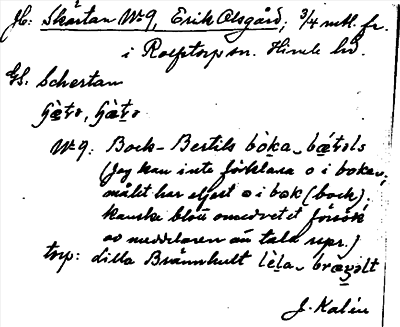 Jb: Skärtan No 9, Erik Olsgård, 3/4 mtl. fr.
i Rolfstorp sn. Himle hd.
GS: Schertan
No 9: Bock-Bertils
(Jag kan inte förklara o i boka,
målet har eljest o i bok (bock),
kanske blott omedvetet försök
av meddelaren att tala rspr.)
torp: lilla Brännhult
J. Kalén